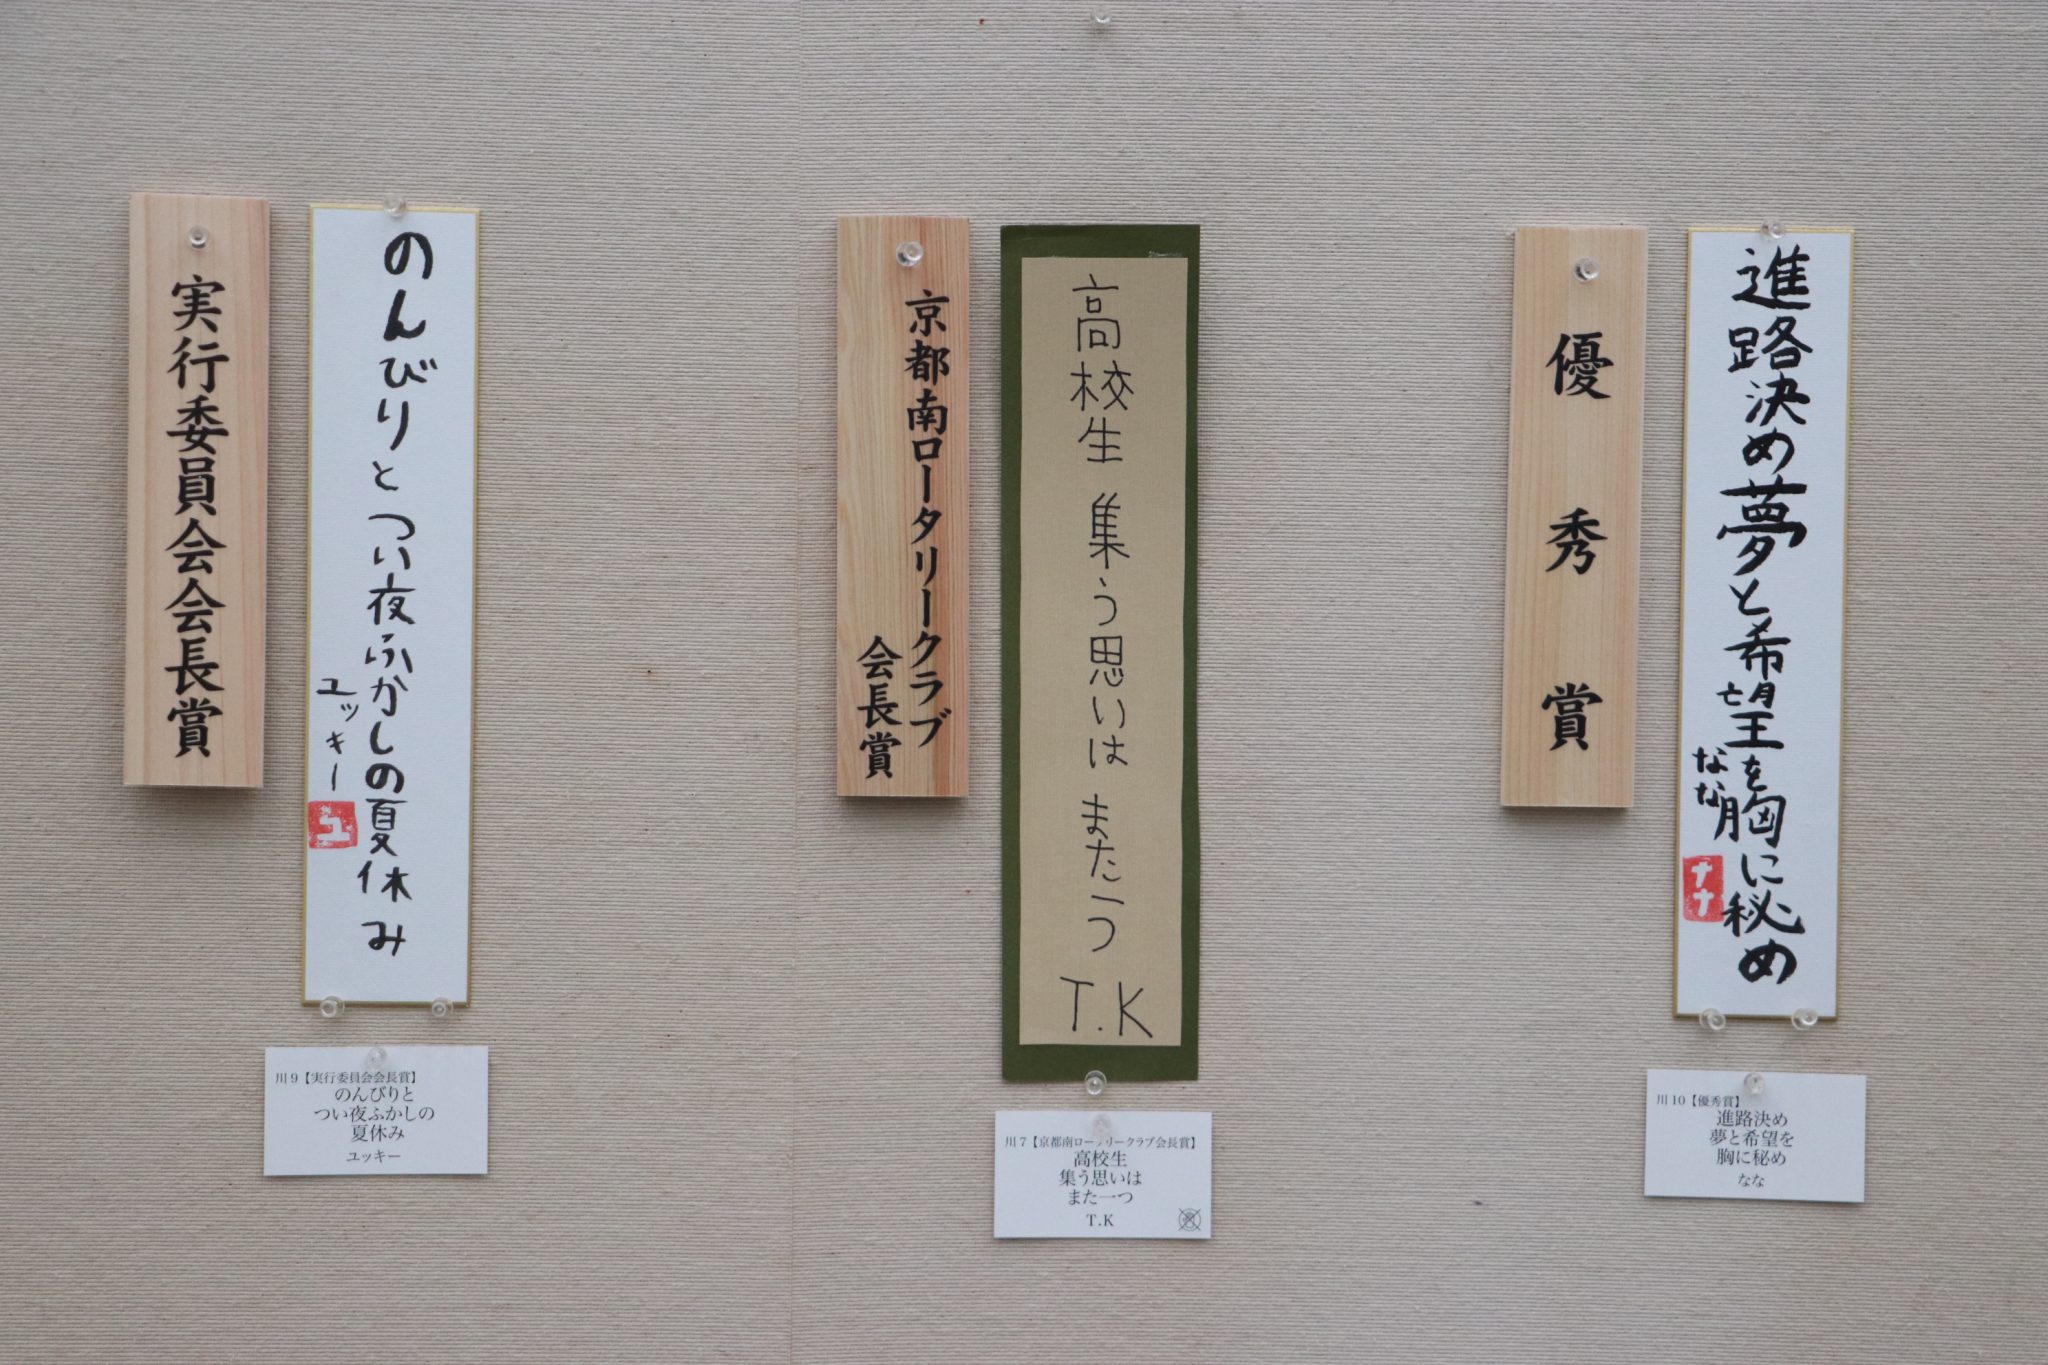 実行委員会会長賞
のんびりとつい夜ふかしの夏休み
ユッキー
ユ
川9【実行委員会会長賞】
のんびりと
つい夜ふかしの
夏休み
ユッキー
京都南ロータリークラブ
会長賞
高校生 集う思いは また一つ
T.K
川7【京都南ロータリークラブ会長賞】
高校生
集う思いは
また一つ
T.K
優秀賞
進路決め夢と希望を胸に秘め
なな
ナナ
川10【優秀賞】
進路決め
夢と希望を
胸に秘め
なな